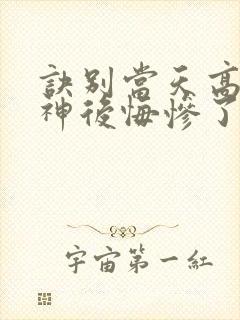 訣別當天高
神後悔慘了
宇宙第一紅